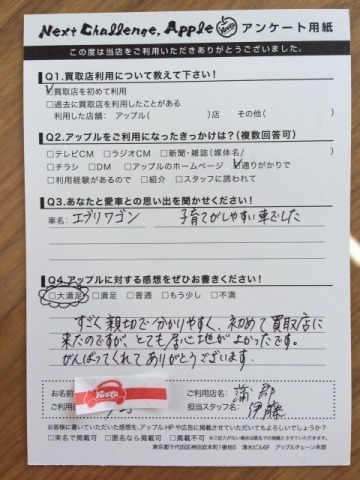 Next Challenge, Apple アンケート用紙
この度は当店をご利用いただきありがとうございました。
Q1.買取店利用について教えて下さい!
□買取店を初めて利用
□過去に買取店を利用したことがある
利用した店舗: アップル( )店 その他( )
Q2.アップルをご利用になったきっかけは?(複数回答可)
□テレビCM □ラジオCM □新聞・雑誌(媒体名/ )
□チラシ □DM □アップルのホームページ □通りがかりで
□利用経験があるので □紹介 □スタッフに誘われて
Q3.あなたと愛車との思い出を聞かせください!
車名: エブリワゴン 子育てがしやすい車でした
Q4.アップルに対する感想をぜひお書きください!
□大満足 □満足 □普通 □もう少し □不満
すごく親切で分かりやすく、初めて買取店に
来たのですが、とても居心地がよかったです。
がんばってくれてありがとうございます。
お名前
ご利用店名: 蒲郡
ご利用
担当スタッフ名: 伊藤
お客様に書いていただいた感想を、アップルHPや広告に掲載させていただいてもよろしいでしょうか?
□実名で掲載可 □匿名なら掲載可 □掲載不可 ※ご記入がない場合は匿名での掲載とさせていただきます。
東京都千代田区神田岩本町1番地5 清水ビル6F アップルチェーン本部